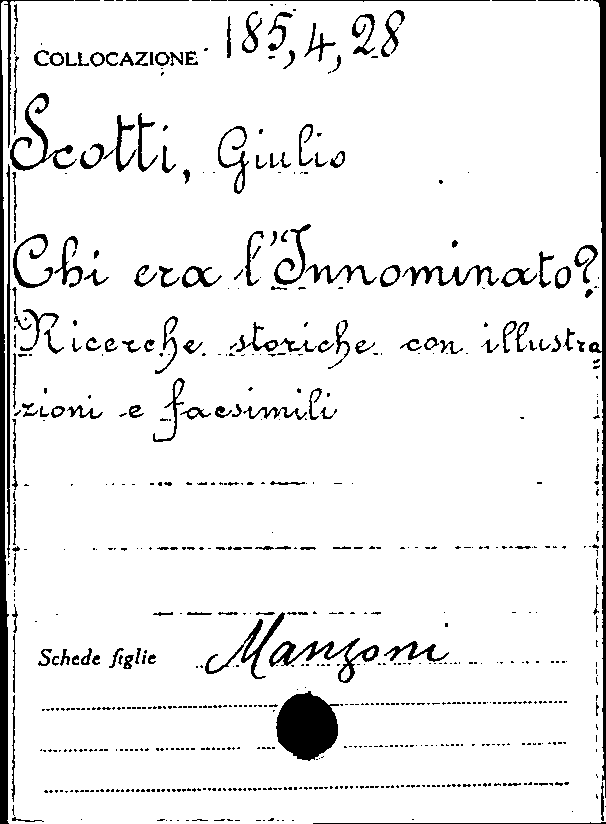 COLLOCAZIONE 185,4,28
Scotti, Giulio
Chi era l'Innominato?
Ricerche storiche con illustra=
zioni e facsimili
Schede figlie Manzoni